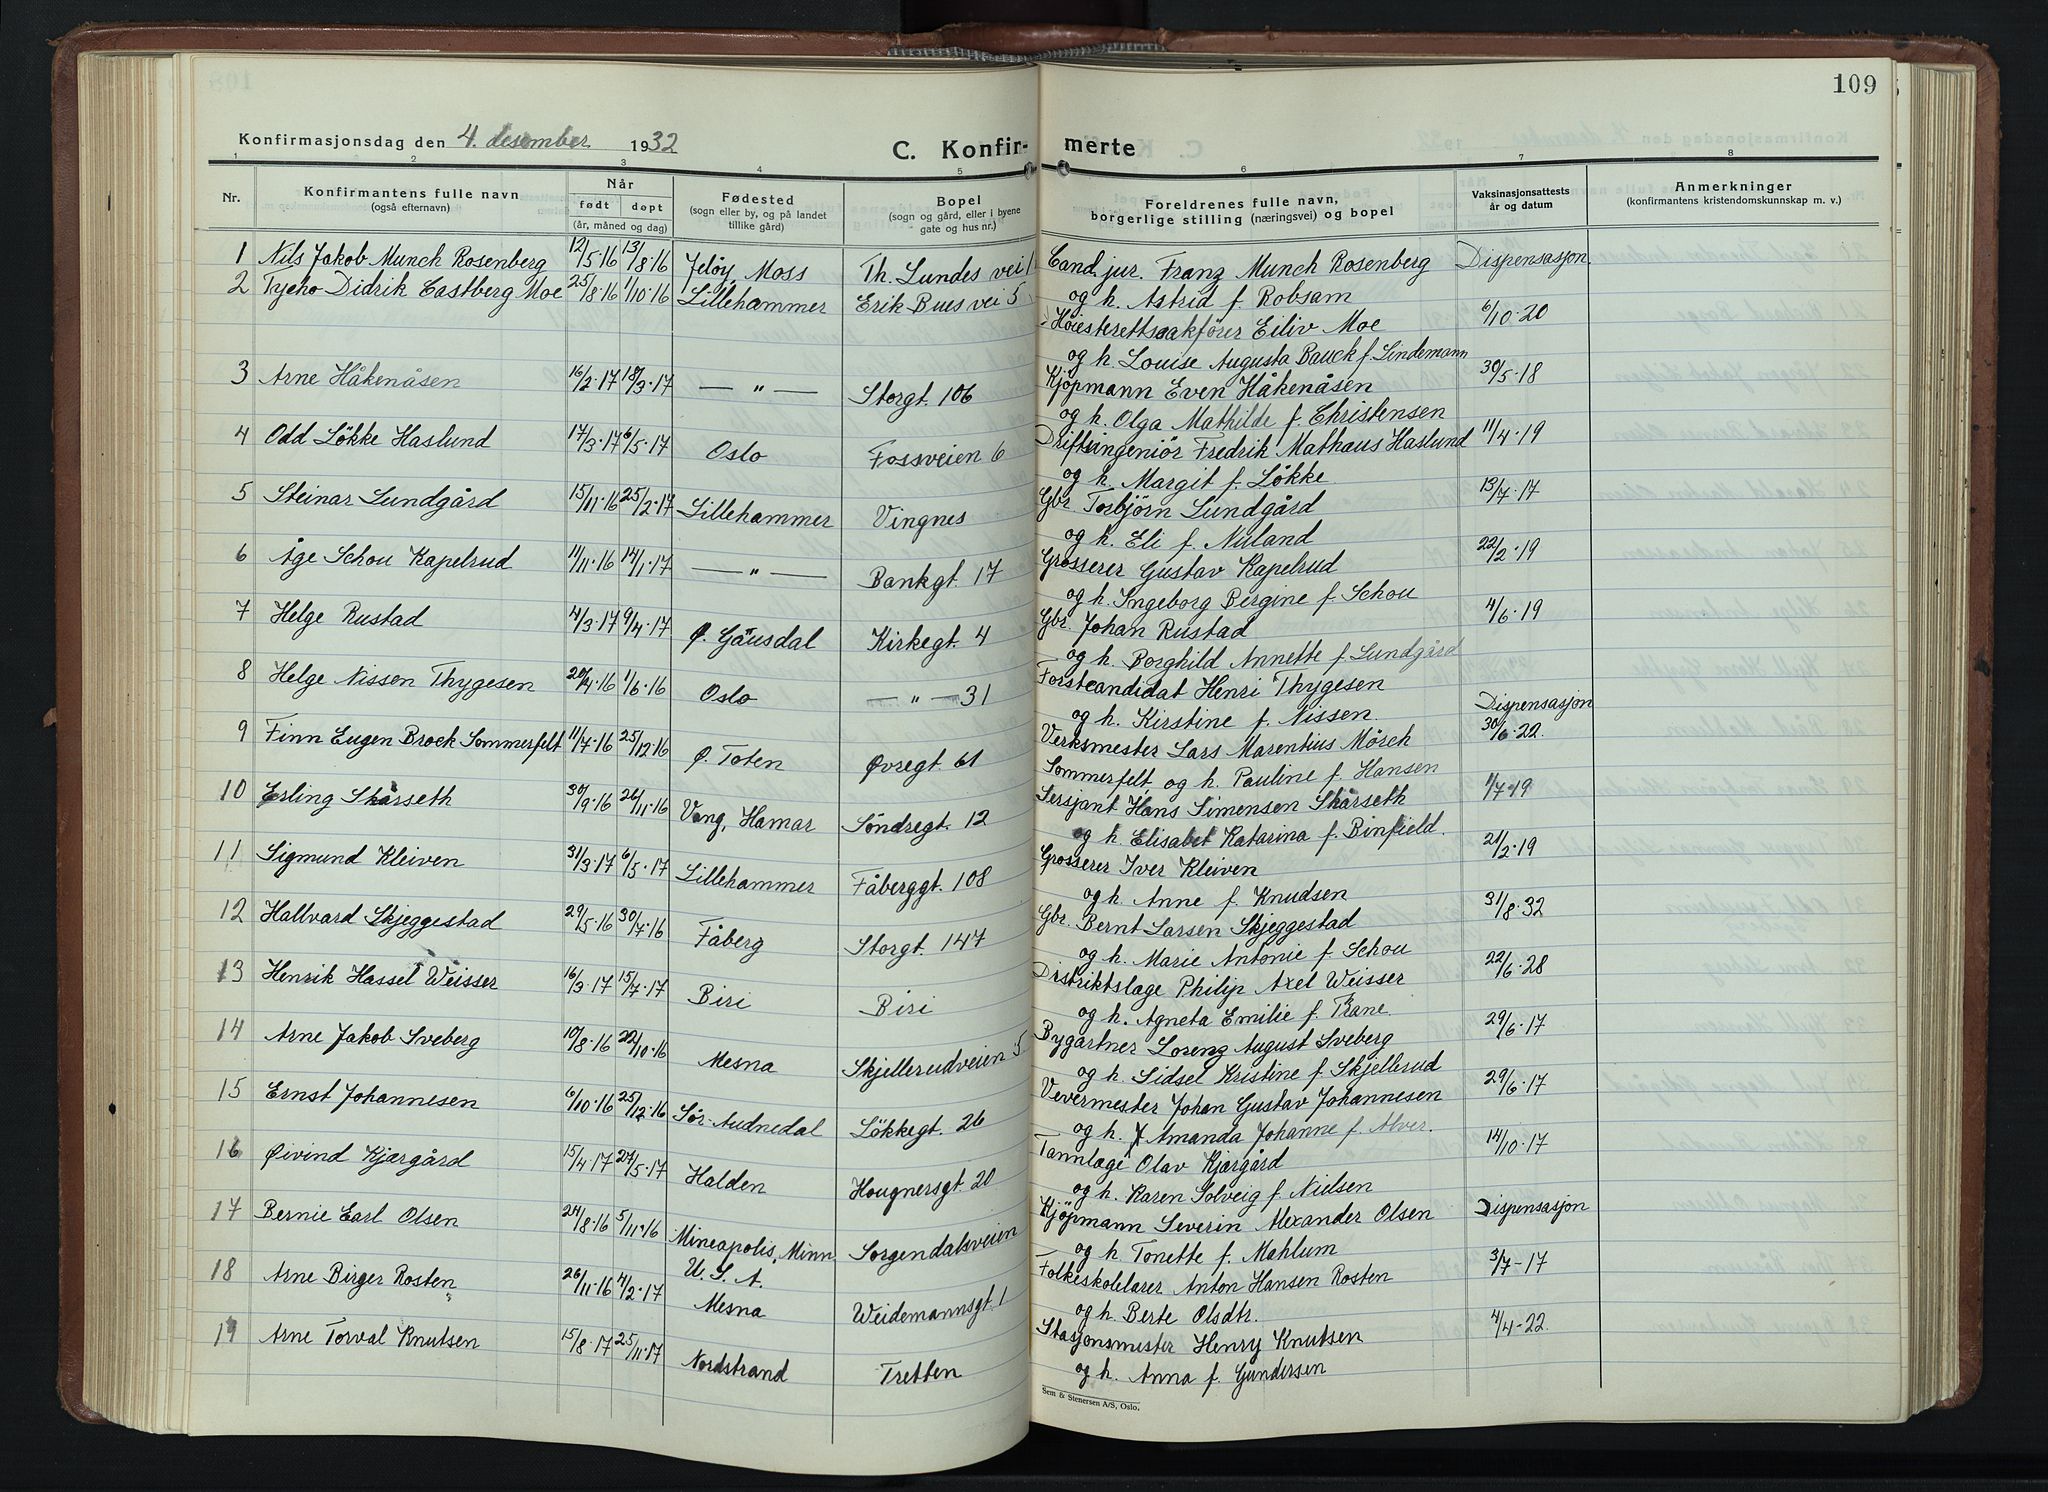 109
Konfirmasjonsdag den 4. desember 1932
C. Konfir-
merte
1 2 3 4 5 6 7 8
Nr.
Konfirmantens fulle navn
(også efternavn)
Når
født døpt
(år, måned og dag)
Fødested
(sogn eller by, og på landet
tillike gård)
Bopel
(sogn og gård, eller i byene
gate og hus nr.)
Foreldrenes fulle navn,
borgerlige stilling (næringsvei) og bopel
Vaksinasjonsattests
år og datum
Anmerkninger
(konfirmantens kristendomskunnskap m. v.)
1 Nils Jakob Munch Rosenberg 12/5·16 13/8·16 Jeløy, Moss Th. Lundes vei 1 Cand. jur. Franz Munch Rosenberg Dispensasjon.
og h. Astrid f. Robsam
2 Tycho Didrik Castberg Moe 25/8·16 1/10·16 Lillehammer Erik Bues vei 5 Høiesterettssakfører Eiliv Moe 6/10·20
og h. Louise Augusta Bauck f. Lindemann
3 Arne Håkenåsen 16/2·17 18/3·17 — " — Storgt. 106 Kjøpmann Even Håkenåsen 30/5·18
og h. Olga Mathilde f. Christensen
4 Odd Løkke Haslund 17/3·17 6/5·17 Oslo Fossveien 6 Driftsingeniør Fredrik Mathaus Haslund 11/4·19
og h. Margit f. Løkke
5 Steinar Lundgård 15/11·16 25/2·17 Lillehammer Vingnes Gbr. Torbjørn Lundgård 13/7·17
og h. Eli f. Nyland
6 Åge Schou Kapelrud 11/11·16 14/1·17 — " — Bankgt. 17 Grosserer Gustav Kapelrud 22/2·19
og h. Ingeborg Bergine f. Schou
7 Helge Rustad 4/3·17 9/4·17 Ø. Gausdal Kirkegt. 4 Gbr. Johan Rustad 4/6·19
og h. Borghild Annette f. Lundgård
8 Helge Nissen Thygesen 20/4·16 1/6·16 Oslo — " — 31 Forstcandidat Henri Thygesen Dispensasjon
og h. Kirstine f. Nissen.
9 Finn Eugen Brock Sommerfelt 11/7·16 25/12·16 Ø. Toten Øvregt. 61 Verksmester Lars Marentius Mörch 30/6·22.
Sommerfelt, og h. Pauline f. Hansen
10 Erling Skårseth 30/9·16 26/11·16 Vang, Hamar Søndregt. 12 Sersjant Hans Simensen Skårseth 1/7·19
og h. Elisabet Katarina f. Binfield.
11 Sigmund Kleiven 31/3·17 6/5·17 Lillehammer Fåberggt. 108 Grosserer Iver Kleiven 21/2·19
og h. Anne f. Knudsen
12 Hallvard Skjeggestad 29/5·16 30/7·16 Fåberg Storgt. 147 Gbr. Bernt Larsen Skjeggestad 31/8·32
og h. Marie Antonie f. Schou
13 Henrik Hassel Weisser 16/3·17 15/7·17 Biri Biri Distriktslæge Philip Axel Weisser 22/6·28
og h. Agneta Emilie f. Trane.
14 Arne Jakob Sveberg 10/8·16 22/10·16 Mesna Skjellerudveien 5 Bygartner Lorenz August Sveberg 29/6·17
og h. Sidsel Kristine f. Skjellerud
15 Ernst Johannesen 6/10·16 25/12·16 Sør-Audnedal Løkkegt. 26 Vevermester Johan Gustav Johannesen 29/6·17
og h. Amanda Johanne f. Alver.
16 Øivind Kjærgård 15/4·17 27/5·17 Halden Hougnersgt. 20 Tannlæge Olav Kjærgård 14/10·17
og h. Karen Solveig f. Nielsen
17 Bernie Earl Olsen 24/8·16 5/11·16 Mineapolis, Minn. Sorgendalsveien Kjøpmann Severin Alexander Olsen Dispensasjon
U. S. A. og h. Tonette f. Mahlum
18 Arne Birger Rosten 26/11·16 4/2·17 Mesna Weidemannsgt. 1 Folkeskolelærer Anton Hansen Rosten 3/7-17
og h. Berte Olsdtr.
19 Arne Torval Knutsen 15/8·17 25/11·17 Nordstrand Tretten Stasjonsmester Henry Knutsen 4/4-22.
og h. Anna f. Gundersen
Sem & Stenersen A/S, Oslo.